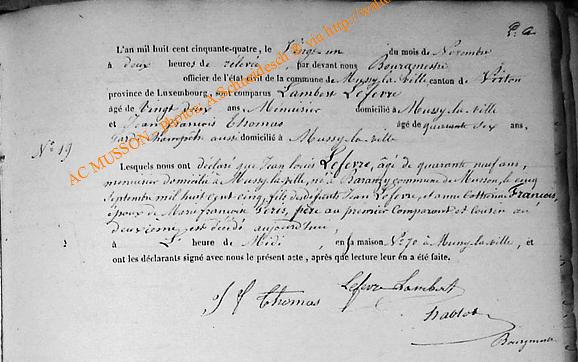 P. a.
L'an mil huit cent cinquante-quatre, le Vingt un du mois de Novembre
à deux heures de relevée par devant nous Bourgmestre
officier de l'état civil de la commune de Mussy-la-ville, canton de Virton
province de Luxembourg, sont comparus Lambert Lefevre
âgé de Vingt deux ans, Menuisier domicilié à Mussy-la-ville
et Jean François Thomas âgé de quarante six ans,
Garde champêtre aussi domicilié à Mussy-la-ville
N° 19
Lesquels nous ont déclaré que Jean Louis Lefevre, âgé de quarante neuf ans,
menuisier domicilié à Mussy-la-ville, né à Baranzy commune de Musson, le cinq
Septembre mil huit cent cinq, fils des défunts Jean Lefevre, et anne Catherine François,
époux de Marie françoise, père au premier Comparant et cousin au
deuxieme est décédé aujourd'hui,
à L' heure de Midi, en sa maison N° 70 à Mussy-la-ville, et
ont les déclarants signé avec nous le présent acte, après que lecture leur en a été faite.
J f Thomas Lefevre Lambert
Bourgmestre
AC MUSSON - photos: A Schmadesch ® via http://